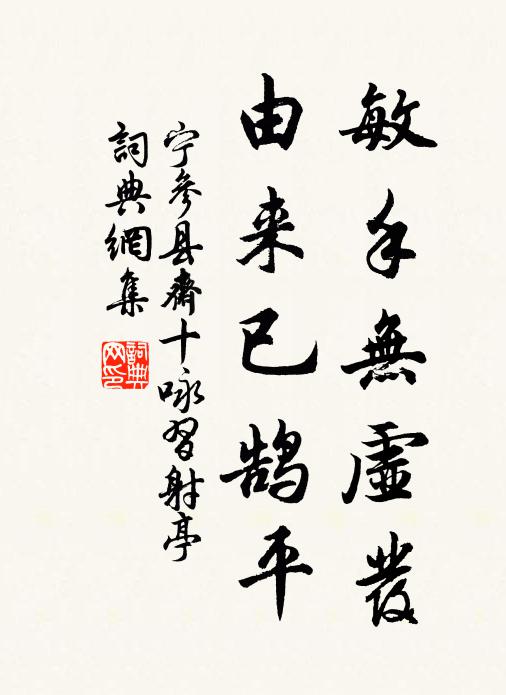 敏手無虛發
由来已鹄平
宁參县齋十咏習射亭
詞典網集
詞典
网印